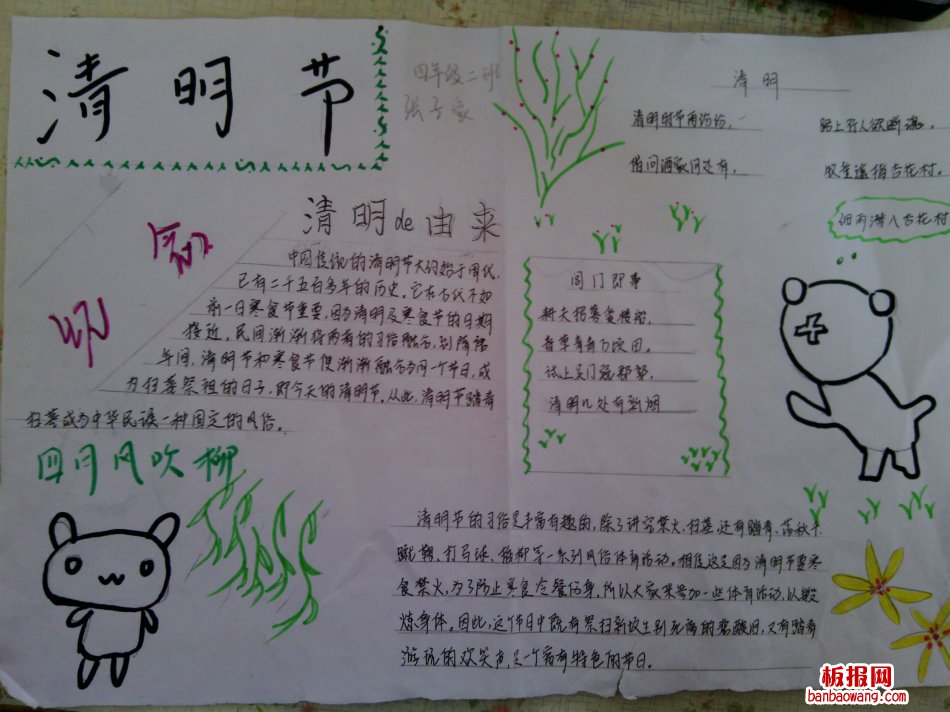 清明节
四年级二班
张子豪
清明
清明时节雨纷纷,
路上行人欲断魂,
借问酒家何处有,
牧童遥指杏花村。
细雨潜入杏花村
清明de由来
中国传统的清明节大约始于周代,
已有二千五百多年的历史。它在古代不如
前一日寒食节重要,因为清明及寒食节的日期
接近,民间渐渐将两者的习俗融合,到隋唐
年间,清明节和寒食节便渐渐融合为同一个节日,成
为扫墓祭祖的日子,即今天的清明节。从此,清明节踏青
扫墓成为中华民族一种固定的风俗。
四月风吹柳
闾门即事
耕夫招募
春草青青万顷田。
试上吴门窥郡郭,
清明几处有新烟
清明节的习俗是丰富有趣的,除了讲究禁火、扫墓,还有踏青、荡秋千
蹴鞠、打马球、插柳等一系列风俗体育活动。相传这是因为清明节要寒
食禁火,为了防止寒食冷餐伤身,所以大家来参加一些体育活动,以锻
炼身体。因此,这个节日中既有祭扫新坟生别死离的悲酸泪,又有踏青
游玩的欢笑声,是一个富有特色的节日。
板报网
banbaowang.com